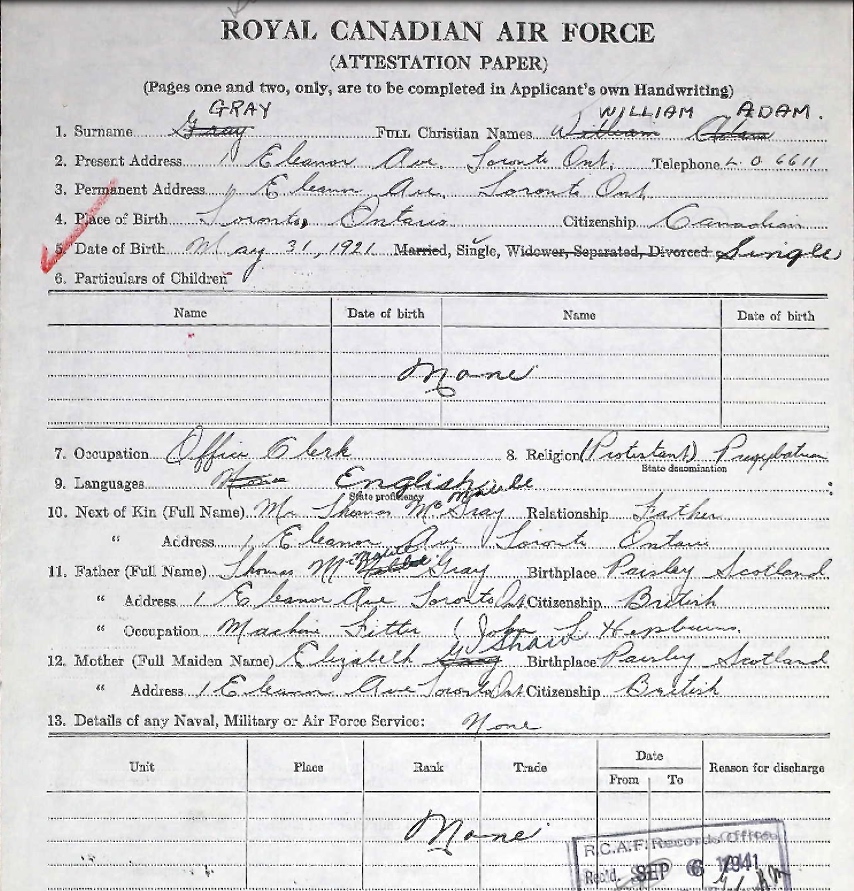 ROYAL CANADIAN AIR FORCE
(ATTESTATION PAPER)
(Pages one and two, only, are to be completed in Applicant's own Handwriting)
GRAY WILLIAM ADAM.
1. Surname Gray FULL Christian Names William Adam
2. Present Address 1 Eleanor Ave, Toronto Ont. Telephone LO 6611
3. Permanent Address 1 Eleanor Ave, Toronto Ont
4. Place of Birth Toronto, Ontario Citizenship Canadian
5. Date of Birth May 31, 1921 Married, Single, Widower, Separated, Divorced Single
6. Particulars of Children
Name Date of birth Name Date of birth
None
7. Occupation Office Clerk 8. Religion (Protestant)
State denomination
9. Languages None English
State proficiency
10. Next of Kin (Full Name) Mr Thomas Mc Gray Relationship Father
" Address 1 Eleanor Ave Toronto Ontario
11. Father (Full Name) Thomas Gray Birthplace Paisley Scotland
" Address 1 Eleanor Ave Toronto Ont Citizenship British
" Occupation Machine Fitter (John T Hepburn.
Shaw
12. Mother (Full Maiden Name) Elizabeth Gray Birthplace Paisley Scotland
" Address 1 Eleanor Ave Toronto Ont Citizenship British
13. Details of any Naval, Military or Air Force Service: None
Unit Place Rank Trade Date Reason for discharge
From To
None
R.C.A.F. Records Office
Rec'd. SEP 6 1941